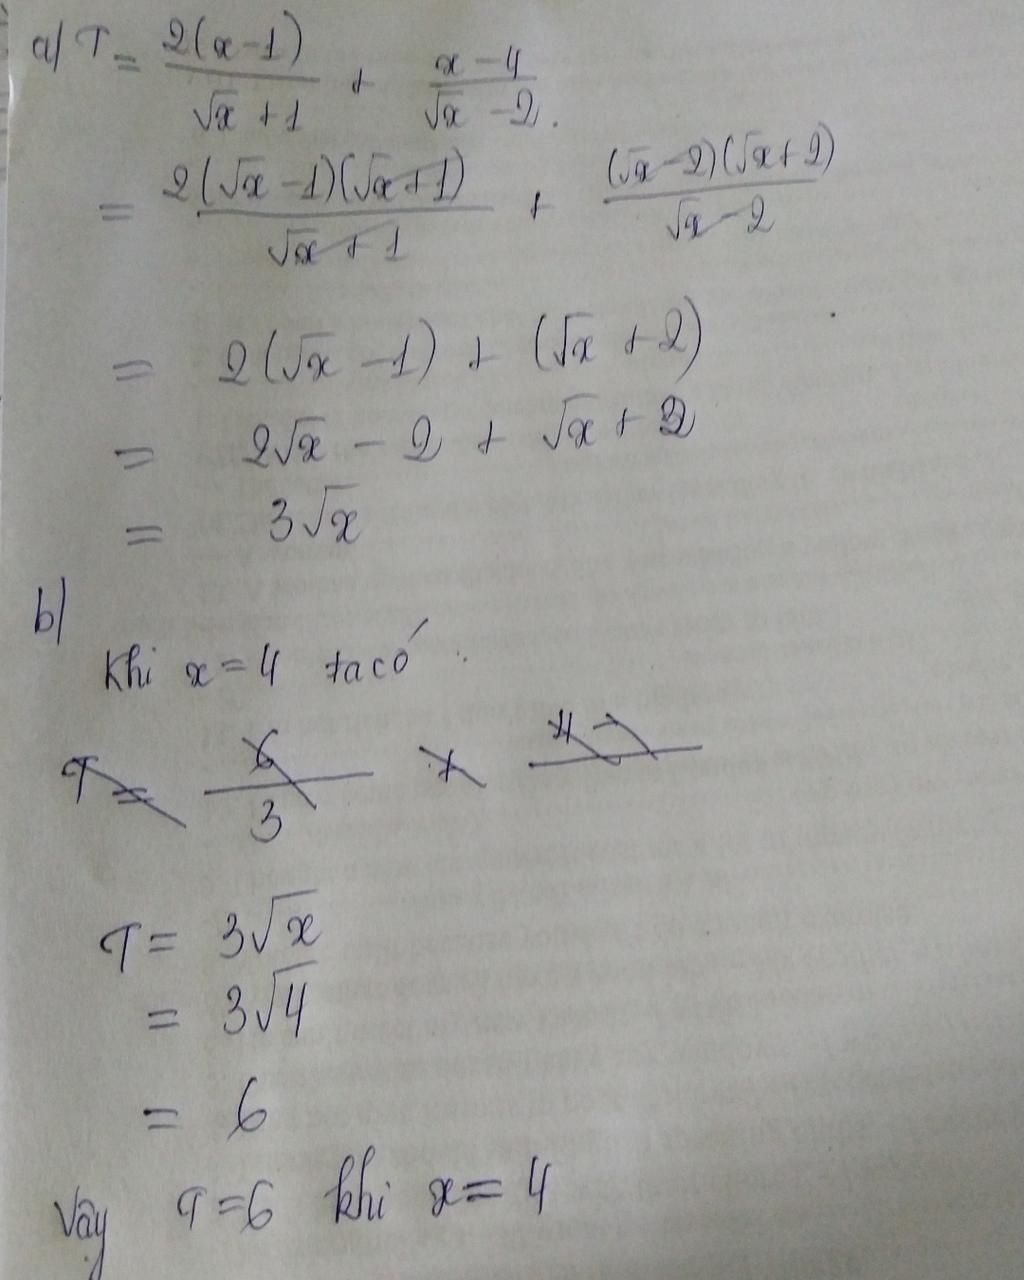 a) T = 2(x-1)/(√x + 1) + (x-4)/(√x - 2).
= 2(√x - 1)(√x + 1)/(√x + 1) + (√x - 2)(√x + 2)/(√x - 2)
= 2(√x - 1) + (√x + 2)
= 2√x - 2 + √x + 2
= 3√x
b)
Khi x = 4 ta có :
T = 6/3 + 4 -
T = 3√x
= 3√4
= 6
Vậy T = 6 khi x = 4